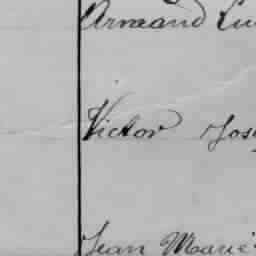 Armand
Victor Jos
Jean Marie